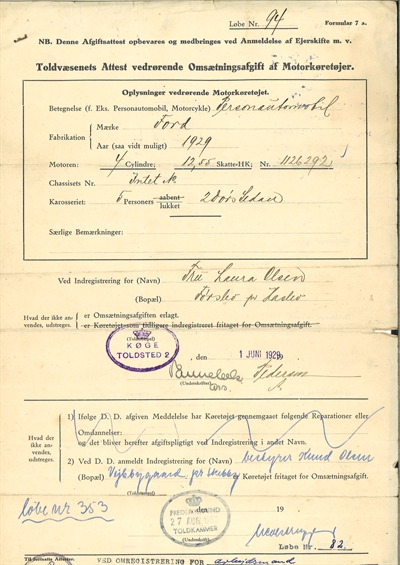 Løbe Nr. 94 Formular 7 a.
NB. Denne Afgiftsattest opbevares og medbringes ved Anmeldelse af Ejerskifte m. v.
Toldvæsenets Attest vedrørende Omsætningsafgift af Motorkøretøjer.
Oplysninger vedrørende Motorkøretøjet.
Betegnelse (f. Eks. Personautomobil, Motorcykle) Personautomobil
Fabrikation
Mærke Ford
Aar (saa vidt muligt) 1929
Motoren: 4 Cylindre; 12,55 Skatte-HK; Nr. 1126292
Chassisets Nr. Intet Nr.
Karosseriet: 5 Personers aabent lukket 2 Dørs Sedan
Særlige Bemærkninger:
Ved Indregistrering for (Navn) Fru Laura Olsen
(Bopæl) Førslev pr Haslev
Hvad der ikke anvendes, udstreges.
er Omsætningsafgiften erlagt.
er Køretøjet som tidligere indregistreret fritaget for Omsætningsafgift.
(Toldsted)
KØGE
TOLDSTED 2
, den 1 JUNI 1929
(Underskrift)
Hvad der ikke anvendes, udstreges.
1) Ifølge D. D. afgiven Meddelelse har Køretøjet gennemgaaet følgende Reparationer eller
Omdannelser:
og det bliver herefter afgiftspligtigt ved Indregistrering i andet Navn.
2) Ved D. D. anmeldt Indregistrering for (Navn)
(Bopæl) Køretøjet fritaget for Omsætningsafgift.
løbe nr 353
27 AUG
TOLDKAMMER
den 19
(Underskrift)
Løbe Nr. 82.
VED OMREGISTRERING FOR arbejdsmand